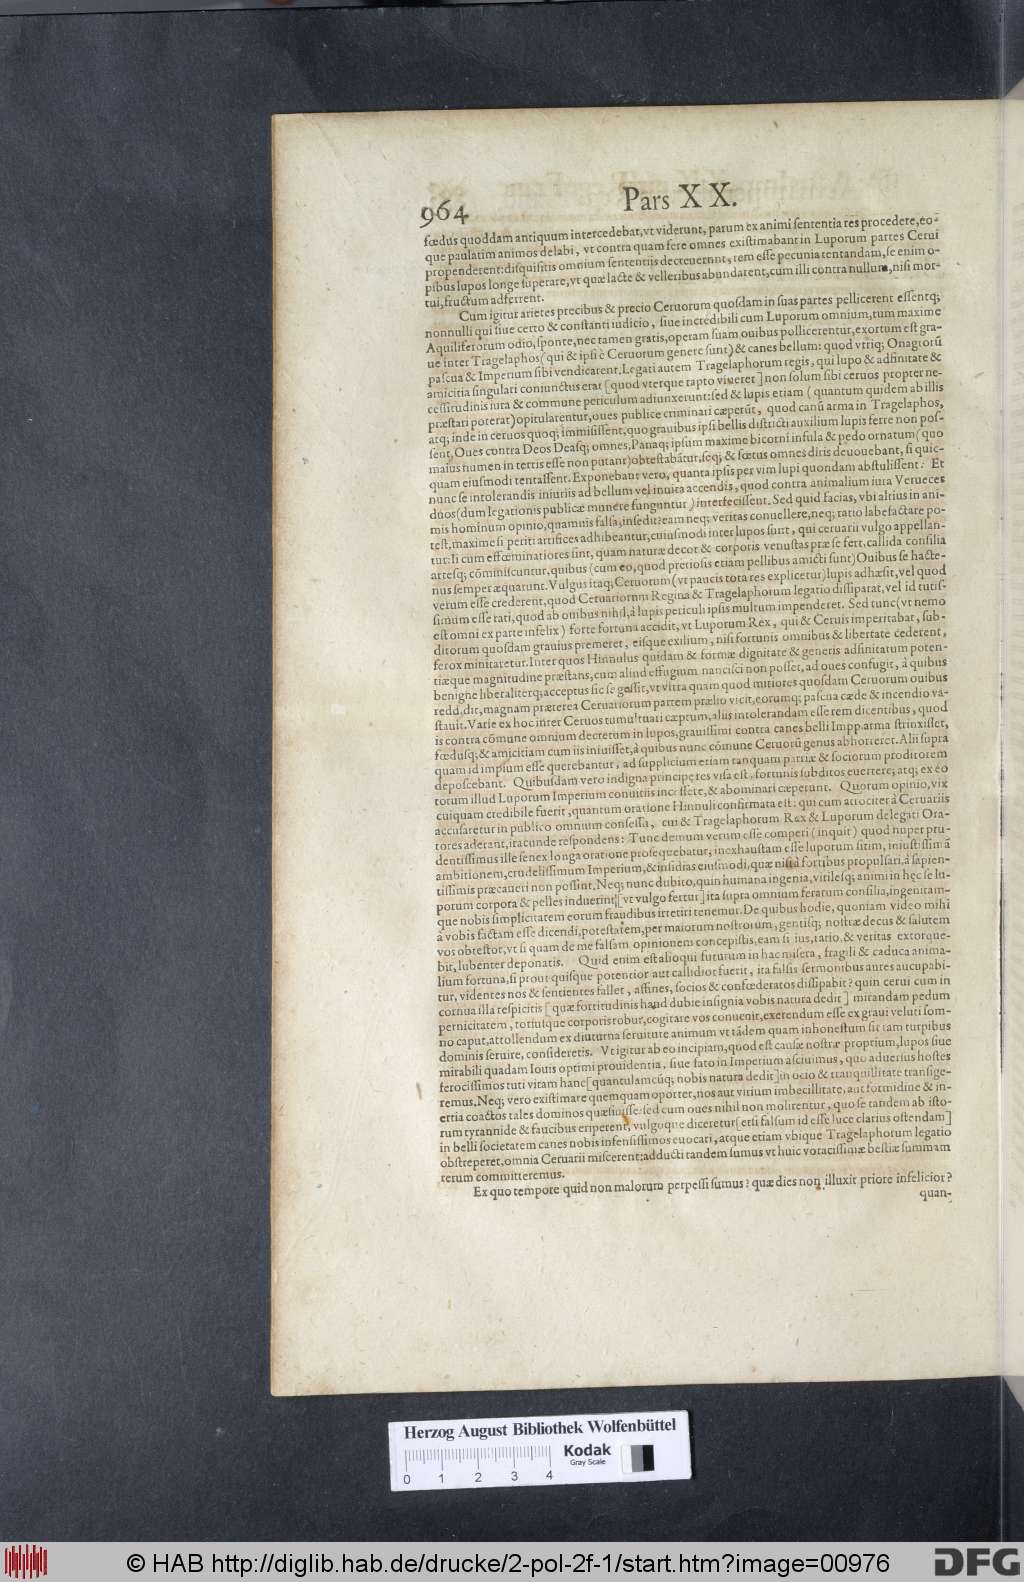 964
Pars XX.
fœdus quoddam antiquum intercedebat, vt viderunt, parum ex animi sententia res procedere, eo-
que paulatim animos delabi, vt contra quam fere omnes existimabant in Luporum partes Cerui
propenderent: disquisitis omnium sententiis decreuernnt, rem esse pecunia tentandam, se enim o-
pibus lupos longe superare, vt quæ lacte & velleribus abundarent, cum illi contra nullum, nisi mor-
tui, fructum adferrent.
Cum igitur arietes precibus & precio Ceruorum quosdam in suas partes pellicerent essentq;
nonnulli qui siue certo & constanti iudicio, siue incredibili cum Luporum omnium, tum maxime
Aquiliferorum odio, sponte, nec tamen gratis, operam suam ouibus pollicerentur, exortum est gra-
ue inter Tragelaphos (qui & ipsi è Ceruorum genere sunt) & canes bellum: quod vtriq; Onagrorū
pascua & Imperium sibi vendicarent. Legati autem Tragelaphorum regis, qui lupo & adfinitate &
amicitia singulari coniunctus erat [quod vterque rapto viueret] non solum sibi ceruos propter ne-
cessitudinis iura & commune periculum adiunxerunt: sed & lupis etiam (quantum quidem ab illis
præstari poterat) opitularentur, oues publice criminari cæperūt, quod canū arma in Tragelaphos,
atq; inde in ceruos quoq; immisissent, quo grauibus ipsi bellis districti auxilium lupis ferre non pos-
sent. Oues contra Deos Deasq; omnes, Panaq; ipsum maxime bicorni insula & pedo ornatum (quo
maius numen in terris esse non putant) obtestabātur, seq; & fœtus omnes diris deuouebant, si quic-
quam eiusmodi tentassent. Exponebant vero, quanta ipsis per vim lupi quondam abstulissent: Et
nunc se intolerandis iniuriis ad bellum vel inuita accendis, quod contra animalium iura Verueces
duos (dum legationis publicæ munere funguntur) interfecissent. Sed quid facias, vbi altius in ani-
mis hominum opinio, quamuis falsa, insedit: eam neq; veritas conuellere, neq; ratio labefactare po-
test, maxime si periti artifices adhibeantur, cuiusmodi inter lupos sunt, qui ceruarii vulgo appellan-
tur: Ii cum effœminatiores sint, quam naturæ decor & corporis venustas præ se fert, callida consilia
artesq; cōminiscuntur, quibus (cum eo, quod preciosis etiam pellibus amicti sunt) Ouibus se hacte-
nus semper æquarunt. Vulgus itaq; Ceruorum (vt paucis tota res explicetur) lupis adhæsit, vel quod
verum esse crederent, quod Ceruariorum Regina & Tragelaphorum legatio dissiparat, vel id tutis-
simum esse rati, quod ab ouibus nihil, à lupis periculi ipsis multum impenderet. Sed tunc (vt nemo
est omni ex parte infelix) forte fortuna accidit, vt Luporum Rex, qui & Ceruis imperitabat, sub-
ditorum quosdam grauius premeret, eisque exilium, nisi fortunis omnibus & libertate cederent,
ferox minitaretur. Inter quos Hinnulus quidam & formæ dignitate & generis adfinitatum poten-
tiæque magnitudine præstans, cum aliud effugium nancisci non posset, ad oues confugit, à quibus
benigne liberaliterq; acceptus sic se gessit, vt vltra quam quod mitiores quosdam Ceruorum ouibus
reddidit, magnam præterea Ceruariorum partem prælio vicit, eorumq; pascua cæde & incendio va-
stauit. Varie ex hoc inter Ceruos tumultuari cæptum, aliis intolerandam esse rem dicentibus, quod
is contra cōmune omnium decretum in lupos, grauissimi contra canes belli Impp. arma strinxisset,
fœdusq; & amicitiam cum iis iniuisset, à quibus nunc cōmune Ceruorū genus abhorreret. Alii supra
quam id impium esse querebantur, ad supplicium etiam tanquam patriæ & sociorum proditorem
deposcebant. Quibusdam vero indigna principe res visa est, fortunis subditos euertere; atq; ex eo
totum illud Luporum Imperium conuitiis incessere, & abominari cæperunt. Quorum opinio, vix
cuiquam credibile fuerit, quantum oratione Hinnuli confirmata est: qui cum atrociter à Ceruariis
accusaretur in publico omnium consessu, cui & Tragelaphorum Rex & Luporum delegati Ora-
tores aderant, ita cunde respondens: Tunc demum verum esse comperi (inquit) quod nuper pru-
dentissimus ille senex longa oratione prosequebatur, inexhaustam esse luporum sitim, iniustissimā
ambitionem, crudelissimum Imperium, & insidias eiusmodi, quæ nisi à fortibus propulsari, à sapien-
tissimis præcaueri non possint. Neq; nunc dubito, quin humana ingenia, virilesq; animi in hęc se lu-
porum corpora & pelles induerint, [vt vulgo fertur] ita supra omnium ferarum consilia, ingenitam-
que nobis simplicitatem eorum fraudibus irretiri tenemur. De quibus hodie, quoniam video mihi
à vobis factam esse dicendi, potestatem, per maiorum nostrorum, gentisq; nostræ decus & salutem
vos obtestor, vt si quam de me falsam opinionem concepistis, eam si ius, ratio, & veritas extorque-
bit, lubenter deponatis. Quid enim est alioqui futurum in hac misera, fragili & caduca anima-
lium fortuna, si prout quisque potentior aut callidior fuerit, ita falsis sermonibus aures aucupabi-
tur, videntes nos & sentientes fallet, affines, socios & confœderatos dissipabit? quin cerui cum in
cornua illa respicitis [quæ fortitudinis haud dubie insignia vobis natura dedit] mirandam pedum
pernicitatem, totiusque corporis robur, cogitare vos conuenit, exerendum esse ex graui veluti som-
no caput, attollendum ex diuturna seruitute animum vt tādem quam inhonestum sit tam turpibus
dominis seruire, consideretis. Vt igitur ab eo incipiam, quod est causæ nostræ proprium, lupos siue
mirabili quadam Iouis optimi prouidentia, siue fato in Imperium asciuimus, quo aduersus hostes
ferocissimos tuti vitam hanc [quantulamcūq; nobis natura dedit] in ocio & tranquillitate transige-
remus. Neq; vero existimare quemquam oportet, nos aut virium imbecillitate, aut formidine & in-
ertia coactos tales dominos quæsiuisse: sed cum oues nihil non molirentur, quo se tandem ab isto-
rum tyrannide & faucibus eriperent, vulgoque diceretur [etsi falsum id esse luce clarius ostendam]
in belli societatem canes nobis infensissimos euocari, atque etiam vbique Tragelaphorum legatio
obstreperet, omnia Ceruarii miscerent: adducti tandem sumus vt huic voracissimæ bestiæ summam
rerum committeremus.
Ex quo tempore quid non malorum perpessi sumus? quæ dies non illuxit priore infelicior?
quan-
Herzog August Bibliothek Wolfenbüttel
Kodak
Gray Scale
0 1 2 3 4
© HAB http://diglib.hab.de/drucke/2-pol-2f-1/start.htm?image=00976
DFG